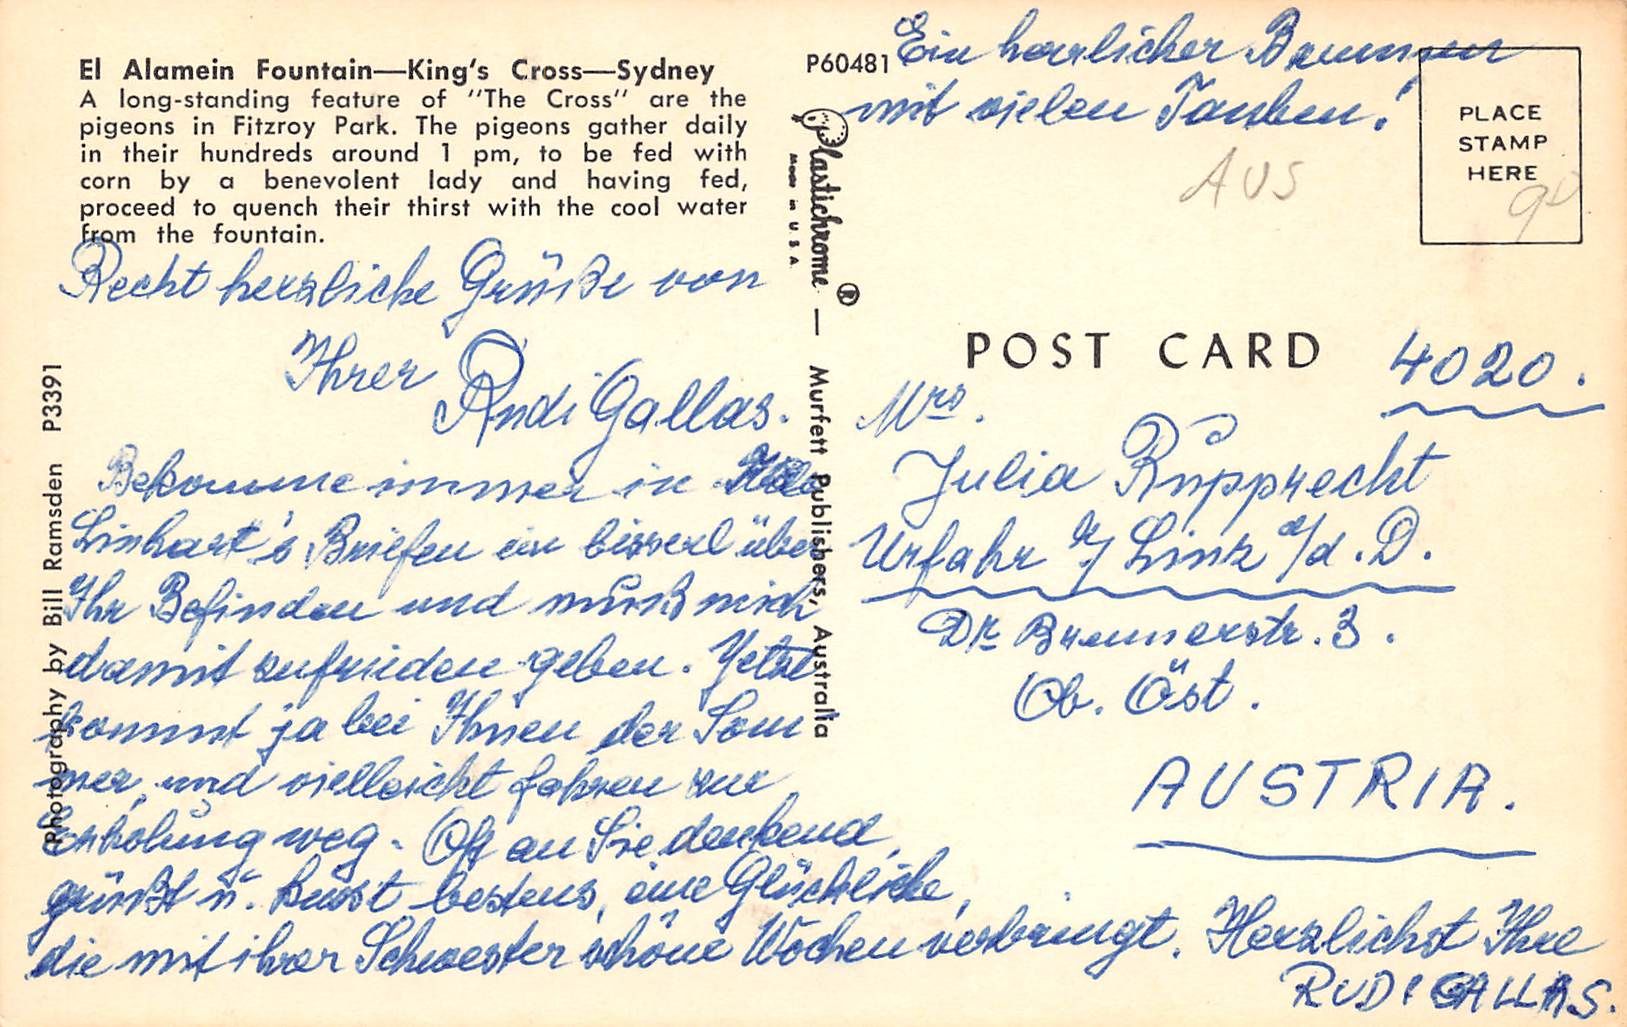 El Alamein Fountain—King's Cross—Sydney
A long-standing feature of "The Cross" are the
pigeons in Fitzroy Park. The pigeons gather daily
in their hundreds around 1 pm, to be fed with
corn by a benevolent lady and having fed,
proceed to quench their thirst with the cool water
from the fountain.
Recht herzliche Grüße von
Ihrer Rudi Gallas.
Bekomme immer in
Linhart's Briefen ein bisserl über
Ihr Befinden und muß mich
damit zufrieden geben. Jetzt
kommt ja bei Ihnen der Som
mer, und vielleicht fahren zur
Erholung weg. Oft an Sie denkend,
grüßt u. küsst bestens, eine Glückliche,
die mit ihrer Schwester schöne Wochen verbringt. Herzlichst Ihre
RUDI GALLAS.
Photography by Bill Ramsden P3391
P60481
Plastichrome ® — Murfett Publishers, Australia
Made in U.S.A.
Ein herrlicher Brunnen
mit vielen Tauben!
AUS
PLACE
STAMP
HERE
90
POST CARD
4020.
Mrs.
Julia Rupprecht
Urfahr / Linz a/d. D.
Dr. Brennerstr. 3.
Ob. Öst.
AUSTRIA.